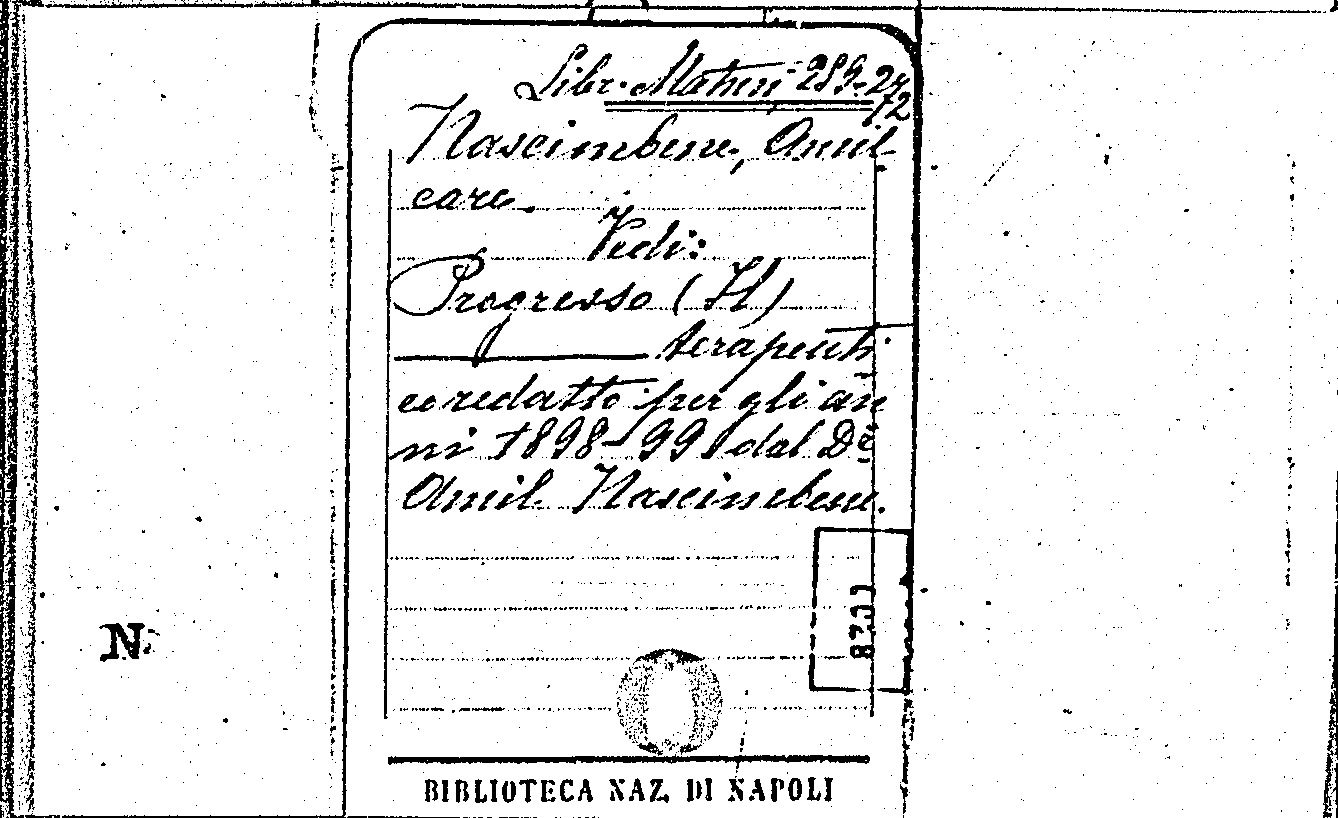 Libr. Materi 289-24
72
Nascimbene, Amil
care.
Vedi:
Progresso (Il)
terapeuti
co redatto per gli an
ni 1898-99 dal Dr
Amil Nascimbene.
N.
BIBLIOTECA NAZ. DI NAPOLI